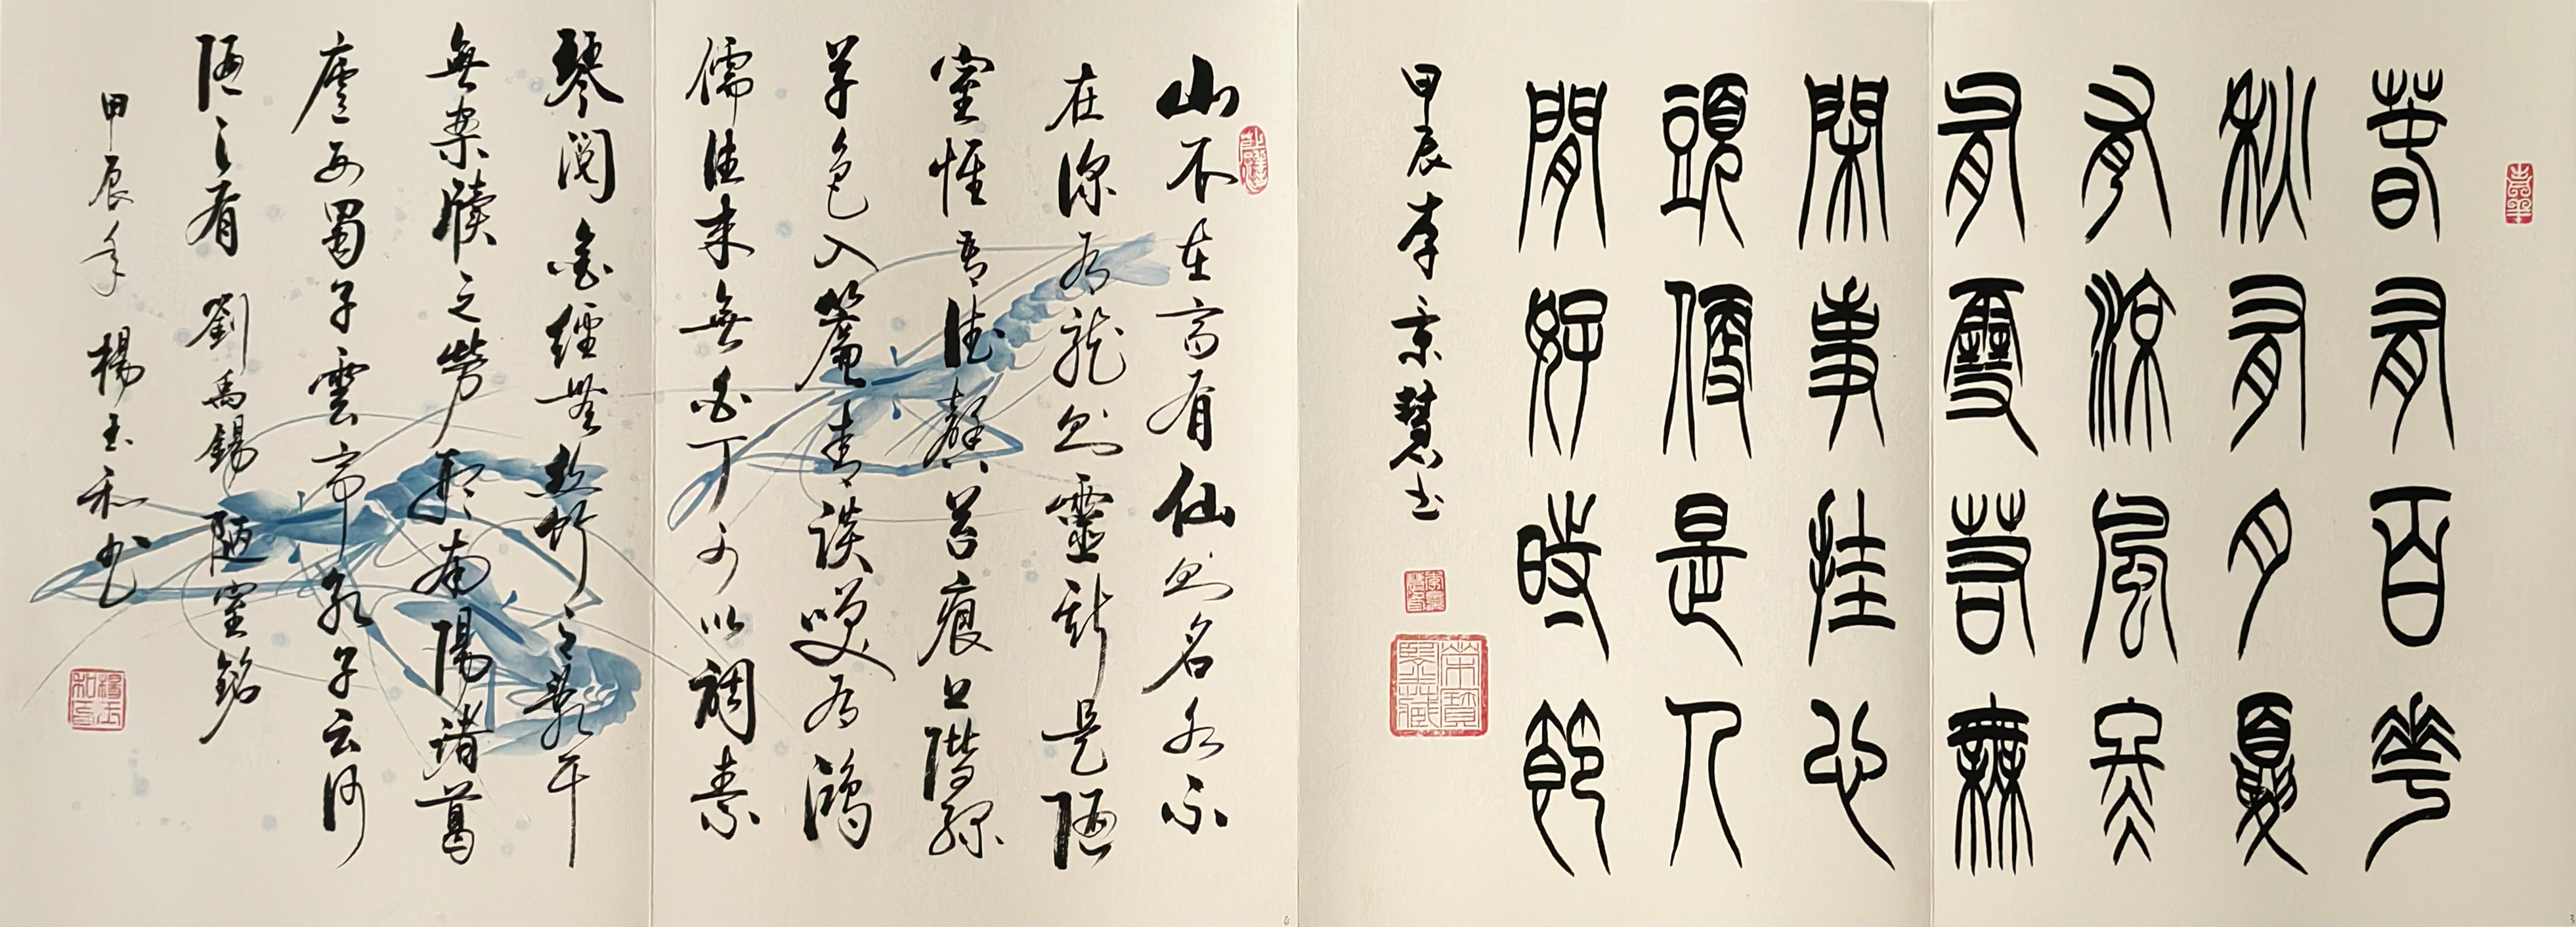 春有百花
秋有月夏
有涼風冬
有雪若無
閑事挂心
頭便是人
閒好時節
甲辰李景慧书
山不在高有仙則名水不
在深有龍則靈斯是陋
室惟吾德馨苔痕上階綠
草色入簾青談笑有鴻
儒往來無白丁可以調素
琴閱金經無絲竹之亂耳
無案牘之勞形南陽諸葛
廬西蜀子雲亭孔子云何
陋之有 劉禹錫 陋室銘
甲辰年 楊玉和书
楊玉和印